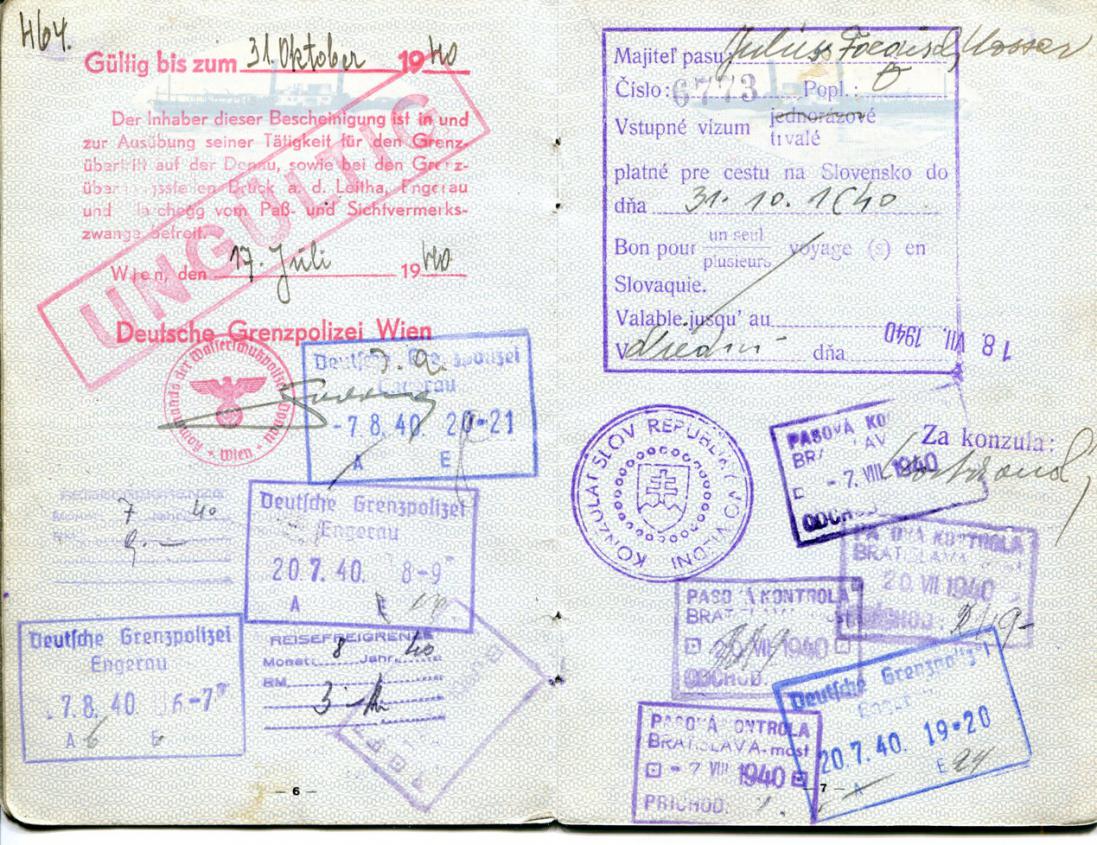 464.
Gültig bis zum 31. Oktober 1940
Der Inhaber dieser Bescheinigung ist in und
zur Ausübung seiner Tätigkeit für den Grenz-
übertritt auf der Donau, sowie bei den Grenz-
Bruck a. d. Leitha, Engerau
und vom Paß- und Sichtvermerks-
zwange befreit.
UNGÜLTIG
Wien, den 17. Juli 1940
Deutsche Grenzpolizei Wien
Wien
Deutsche Grenzpolizei
Engerau
-7.8.40. 20-21
A E
7 40
Deutsche Grenzpolizei
Engerau
20.7.40. 8-9
A E
Deutsche Grenzpolizei
Engerau
7.8.40 6-7
A E
REISEFREIGRENZE
Monat 8 Jahr 40
RM. 3
- 6 -
Majiteľ pasu: Julius
Číslo: 6773 Popl.:
Vstupné vízum jednorázové
trvalé
platné pre cestu na Slovensko do
dňa 31. 10. 1940
Bon pour un seul
plusieurs voyage (s) en
Slovaquie.
Valable jusqu' au
V dňa 18. VII. 1940
KONZULÁT SLOV. REPUBLIKY VO VIEDNI
Za konzula:
PASOVÁ KO
BR AV
-7. VIII 1940
ODCH
PASOVÁ KONTROLA
BRATISLAVA
20. VII 1940
PRÍCHOD:
PASOVÁ KONTROLA
BRAT
20. VII 1940
ODCHOD:
Deutsche Grenzpolizei
Engerau
20.7.40. 19-20
A E
PASOVÁ KONTROLA
BRATISLAVA-most
-7 VIII 1940
PRÍCHOD:
- 7 -